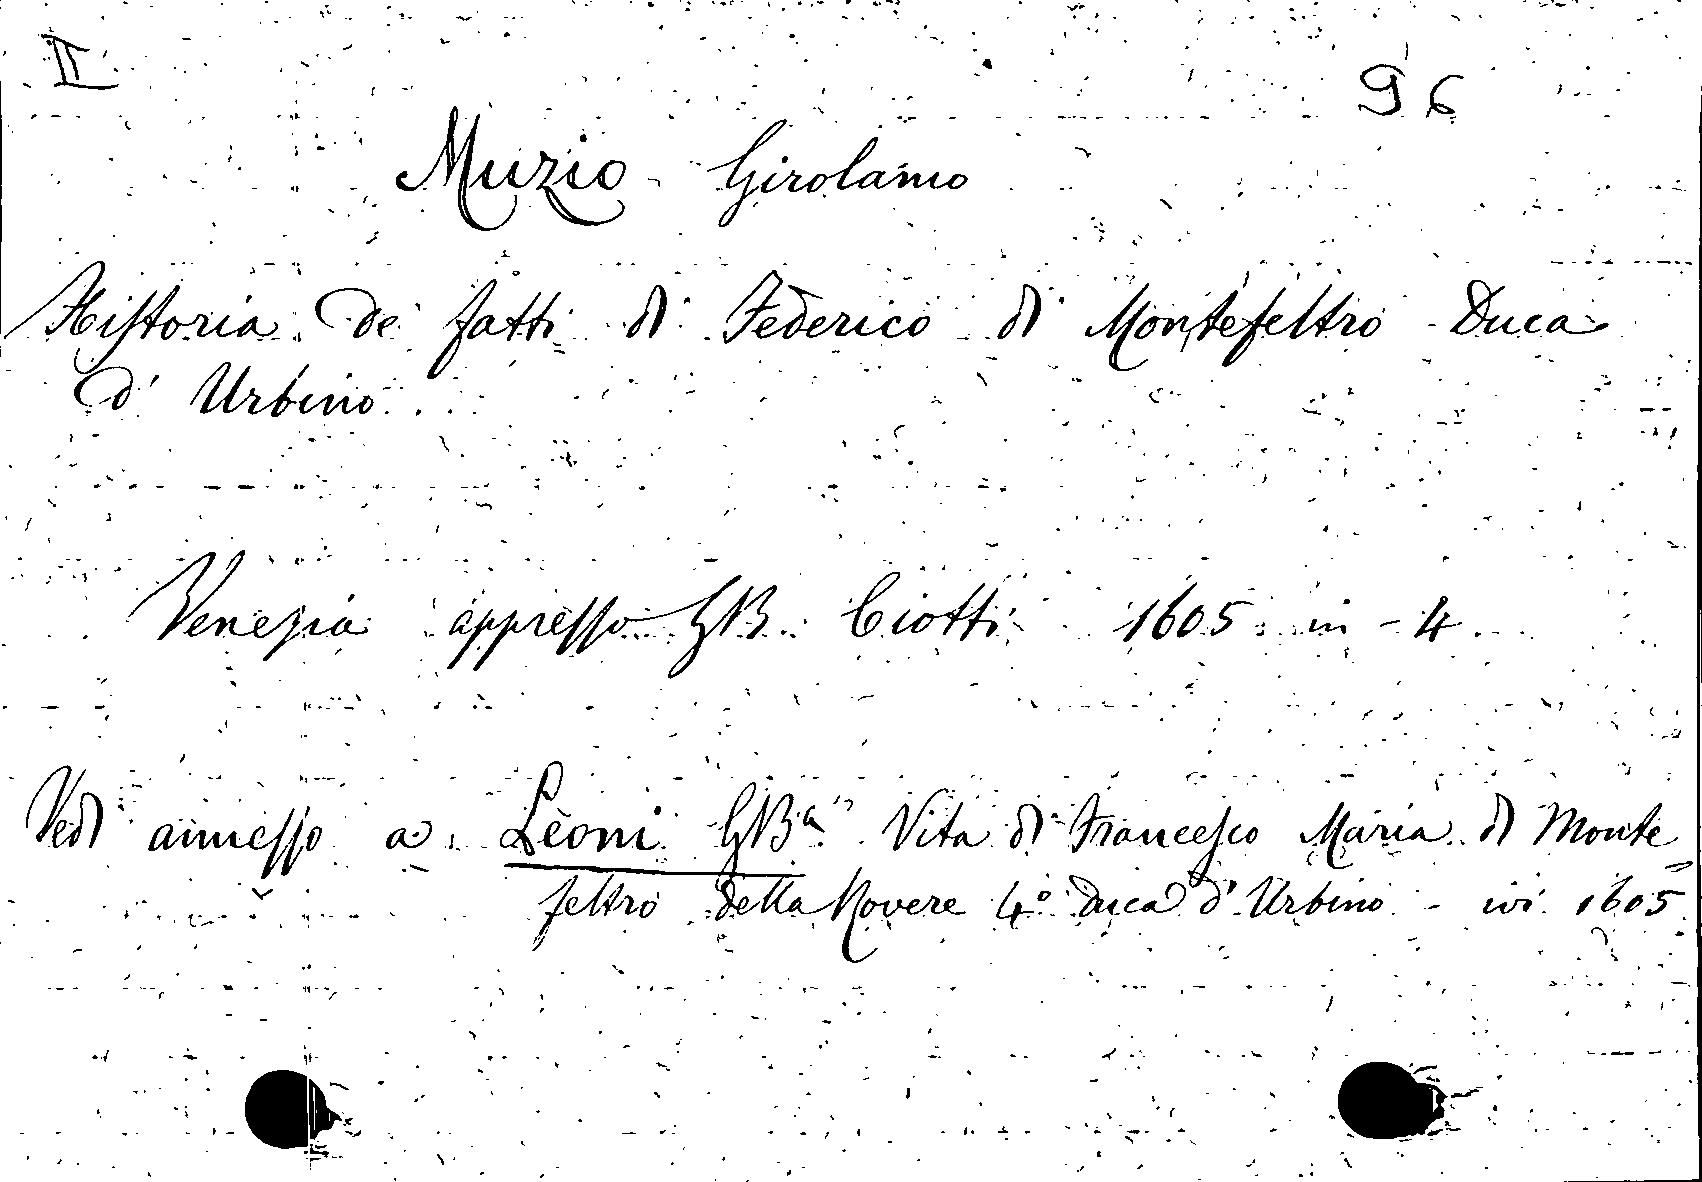 II
96
Muzio Girolamo
Historia de fatti di Federico di Montefeltro Duca
d' Urbino
Venezia appresso GB. Ciotti 1605 in-4
Vedi annesso a Leoni GBa Vita di Francesco Maria di Monte
feltro della Rovere 4º Duca d' Urbino - ivi 1605